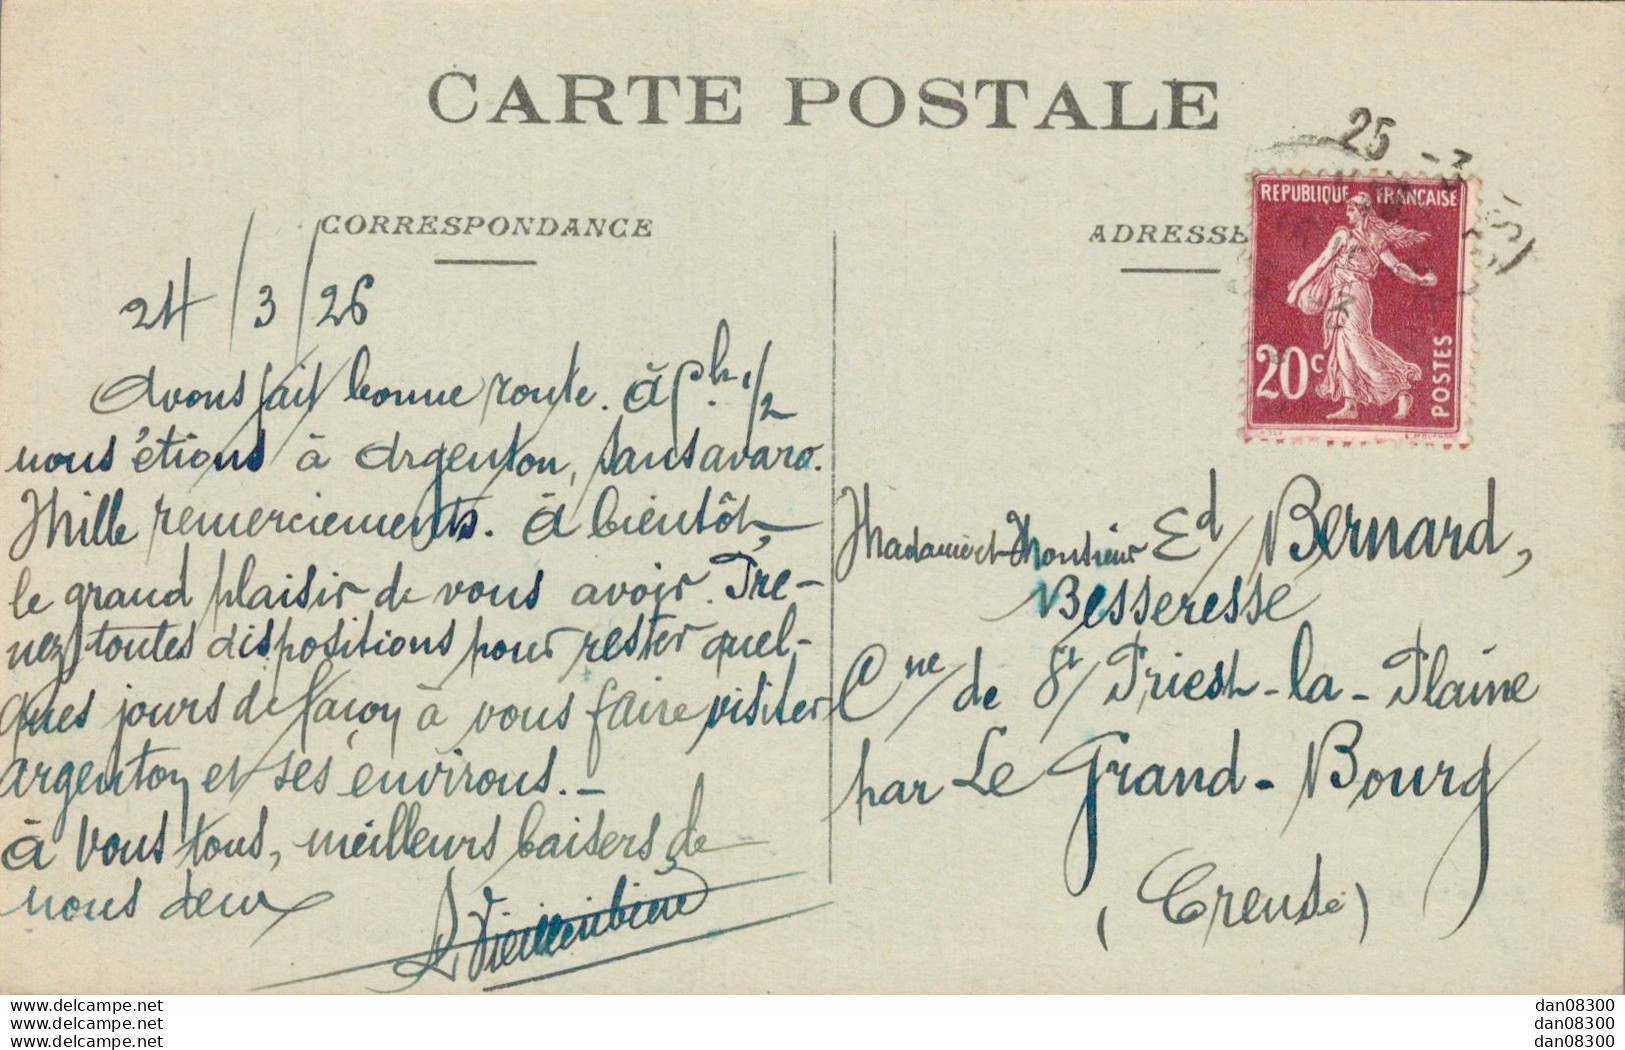 CARTE POSTALE
CORRESPONDANCE
ADRESSE
25 - 3
REPUBLIQUE FRANÇAISE
20c
POSTES
24/3/26
Avons fait bonne route. à 5h. 1/2
nous étions à Argenton, sans avaro.
Mille remerciements. à bientôt,
le grand plaisir de vous avoir. Pre-
nez toutes dispositions pour rester quel-
ques jours de façon à vous faire visiter
Argenton et ses environs. -
à vous tous, meilleurs baisers de
nous deux
Madame et Monsieur Ed Bernard,
Besseresse
Cne de St Priest-la-Plaine
par Le Grand-Bourg
(Creuse)
www.delcampe.net
www.delcampe.net
www.delcampe.net
dan08300
dan08300
dan08300